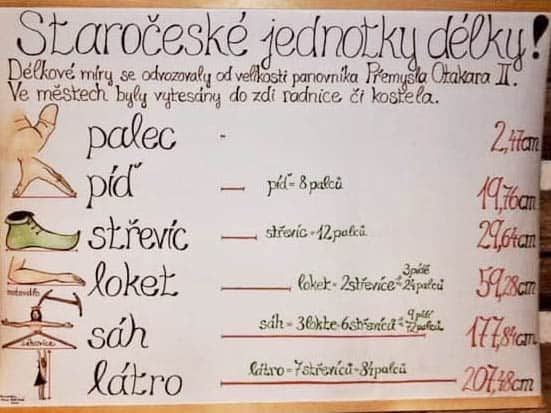 Staročeské jednotky délky!
Délkové míry se odvozovaly od velikosti panovníka Přemysla Otakara II.
Ve městech byly vytesány do zdi radnice či kostela.
palec 2,47cm
píď píď = 8 palců 19,76cm
střevíc střevíc = 12 palců 29,64cm
loket loket = 2 střevíce = 3 pídě = 24 palců 59,28cm
sáh sáh = 3 lokte = 6 střevíců = 9 pídí = 72 palců 177,84cm
látro látro = 7 střevíců = 84 palců 207,48cm